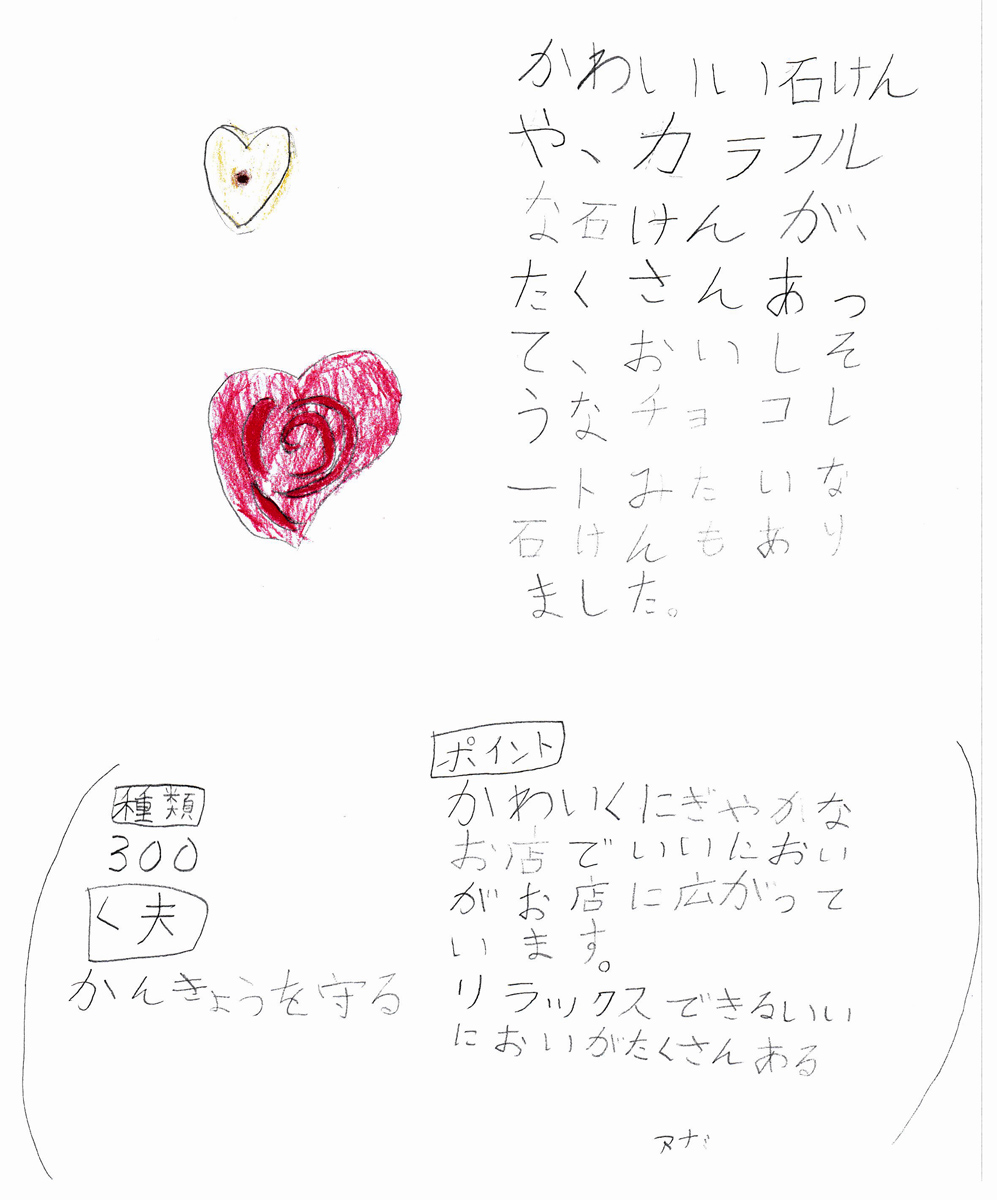 かわいい石けん
や、カラフル
な石けんが、
たくさんあっ
て、おいしそ
うなチョコレ
ートみたいな
石けんもあり
ました。
種類
300
く夫
かんきょうを守る
ポイント
かわいくにぎやかな
お店でいいにおい
がお店に広がって
います。
リラックスできるいい
においがたくさんある